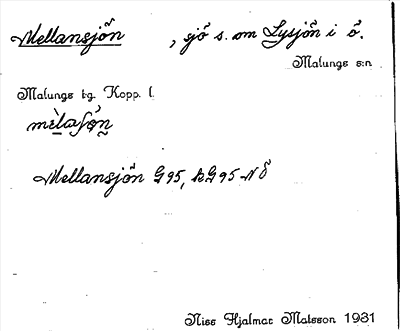 Mellansjön, sjö s. om Lysjön i ö.
Malungs s:n
Malungs tg. Kopp. l.
Mellansjön G95, kG95 NÖ
Niss Hjalmar Matsson 1931